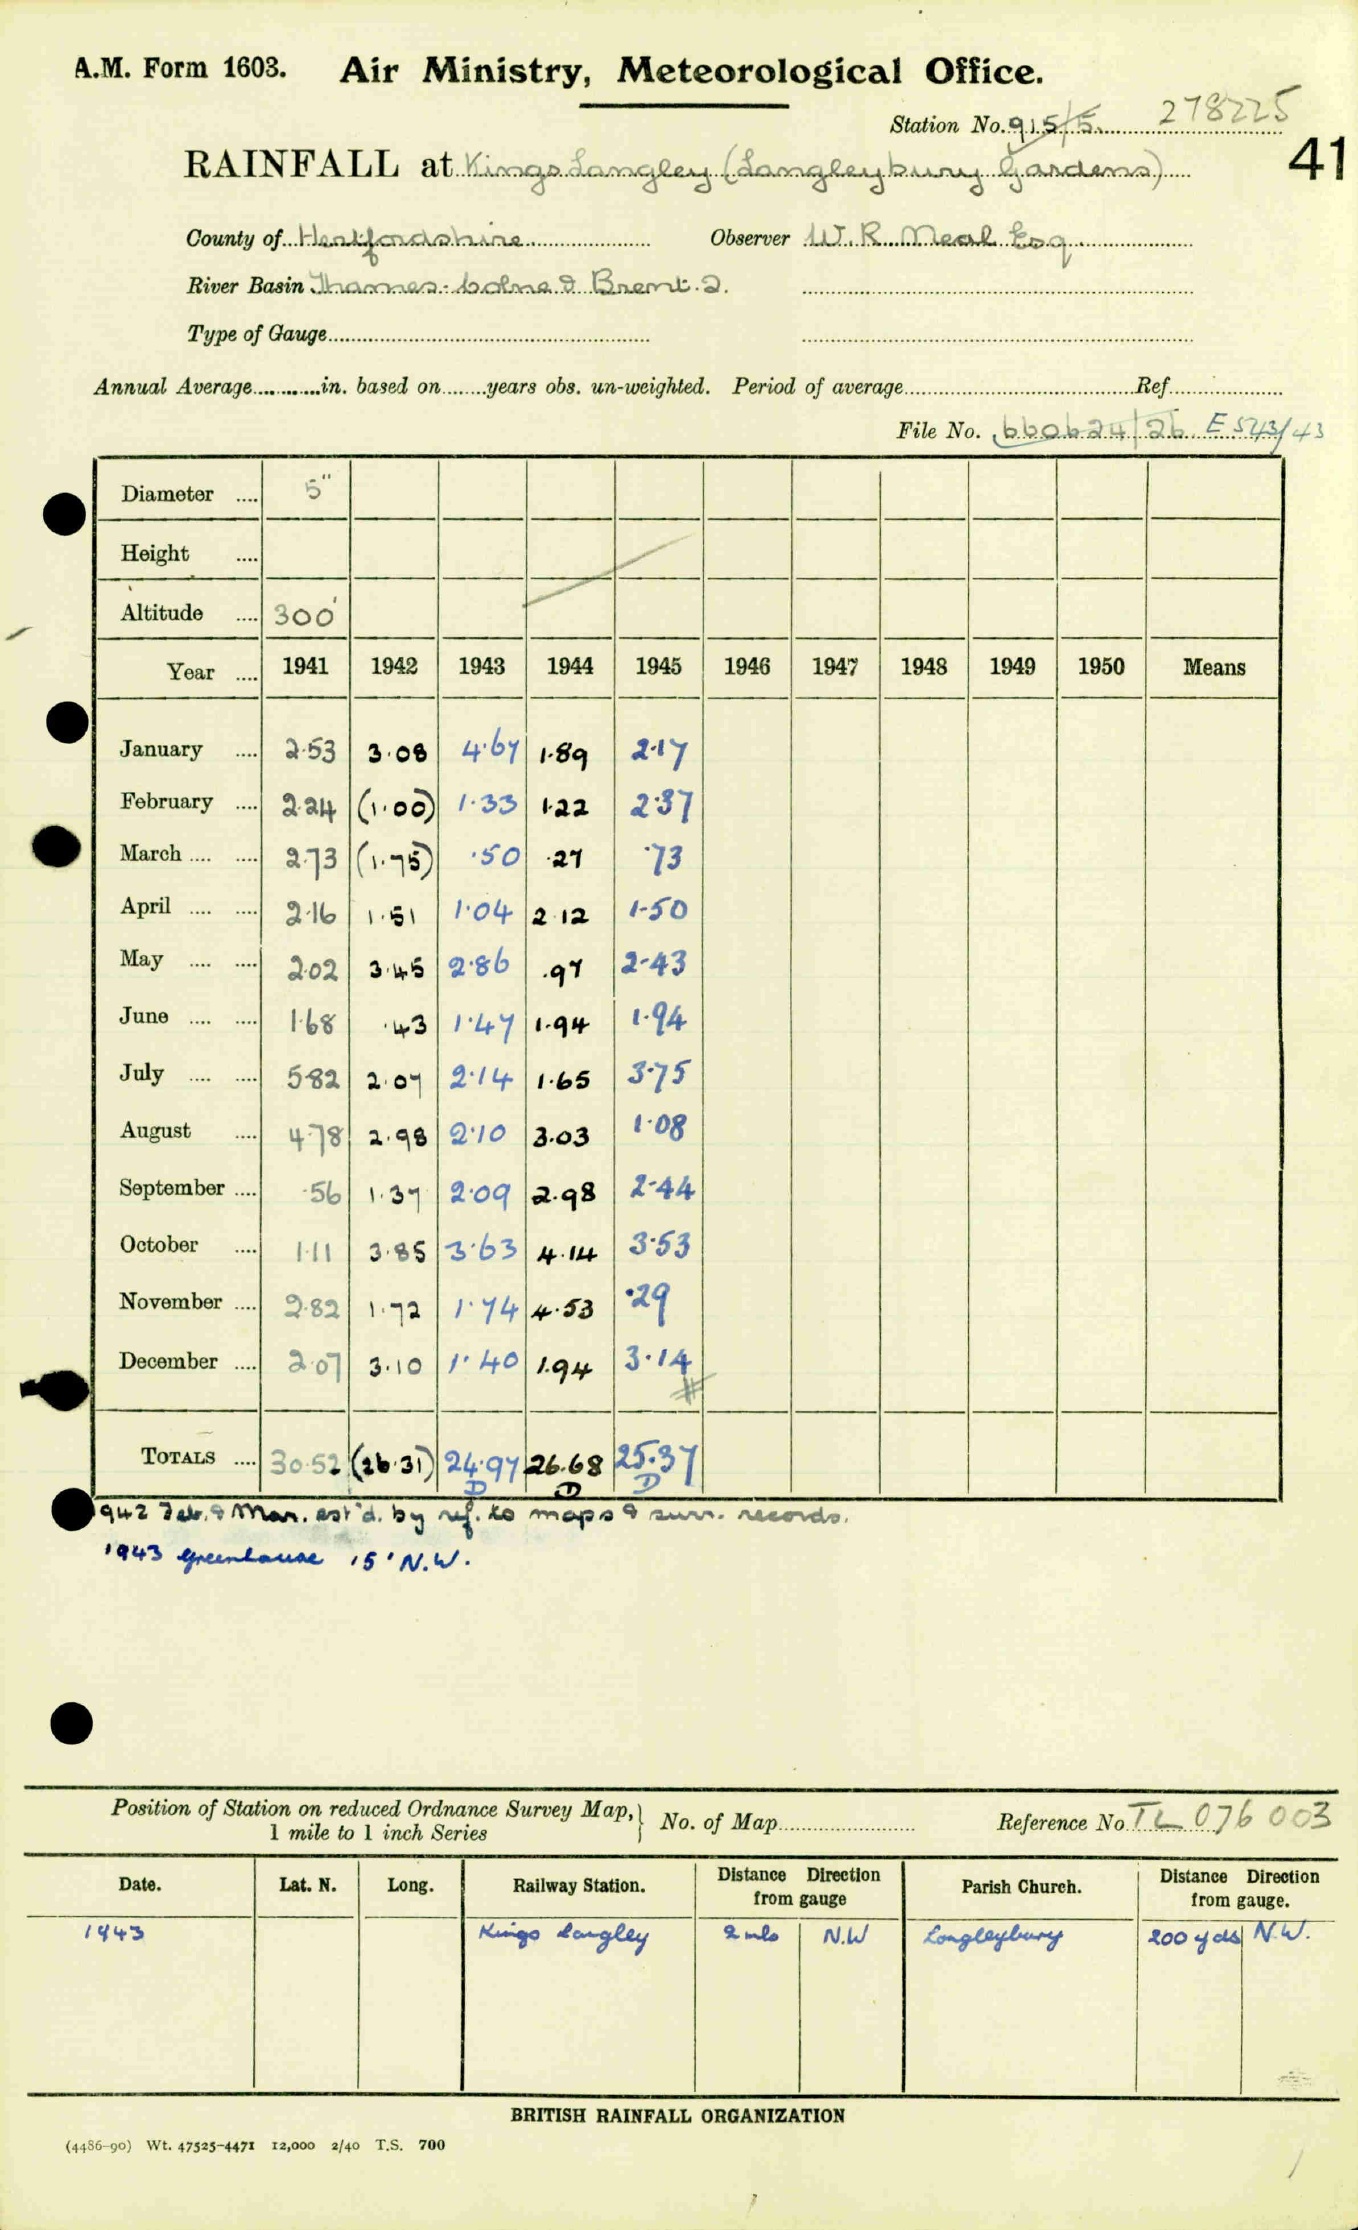 A.M. Form 1603. Air Ministry, Meteorological Office.
Station No. 915/5. 278225
RAINFALL at Kings Langley (Langleybury Gardens) 41
County of Hertfordshire Observer W. R. Meal Esq
River Basin Thames - Colne & Brent. 2.
Type of Gauge
Annual Average in. based on years obs. un-weighted. Period of average Ref
File No. 660624/26 E 543/43
Diameter 5"
Height
Altitude 300'
Year 1941 1942 1943 1944 1945 1946 1947 1948 1949 1950 Means
January 2.53 3.08 4.67 1.89 2.17
February 2.24 (1.00) 1.33 1.22 2.37
March 2.73 (1.75) .50 .27 .73
April 2.16 1.51 1.04 2.12 1.50
May 2.02 3.45 2.86 .97 2.43
June 1.68 .43 1.47 1.94 1.94
July 5.82 2.07 2.14 1.65 3.75
August 4.78 2.98 2.10 3.03 1.08
September .56 1.37 2.09 2.98 2.44
October 1.11 3.85 3.63 4.14 3.53
November 2.82 1.72 1.74 4.53 .29
December 2.07 3.10 1.40 1.94 3.14
TOTALS 30.52 (26.31) 24.97 26.68 25.37
D D D
942 Feb. & Mar. est'd. by ref. to maps & surr. records.
1943 Greenhouse 15' N.W.
Position of Station on reduced Ordnance Survey Map, 1 mile to 1 inch Series } No. of Map Reference No. TL 076 003
Date. Lat. N. Long. Railway Station. Distance Direction from gauge Parish Church. Distance Direction from gauge.
1943 Kings Langley 2 mls N.W Langleybury 200 yds N.W.
BRITISH RAINFALL ORGANIZATION
(4486-90) Wt. 47525-4471 12,000 2/40 T.S. 700